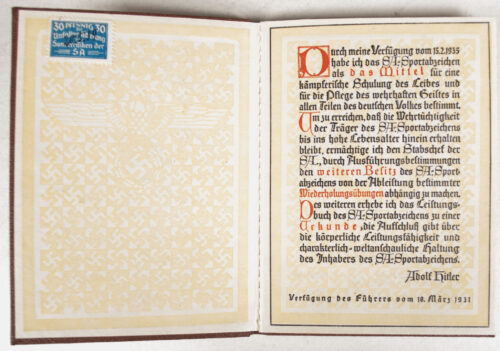 30 PFENNIG 30
SA
Durch meine Verfügung vom 15.2.1935
habe ich das SA-Sportabzeichen
als das Mittel für eine
kämpferische Schulung des Leibes und
für die Pflege des wehrhaften Geistes in
allen Teilen des deutschen Volkes bestimmt.
Um zu erreichen, daß die Wehrtüchtigkeit
der Träger des SA-Sportabzeichens
bis ins hohe Lebensalter hinein erhalten
bleibt, ermächtige ich den Stabschef der
SA., durch Ausführungsbestimmungen
den weiteren Besitz des SA-Sport-
abzeichens von der Ableistung bestimmter
Wiederholungsübungen abhängig zu machen.
Des weiteren erhebe ich das Leistungs-
buch des SA-Sportabzeichens zu einer
Urkunde, die Aufschluß gibt über
die körperliche Leistungsfähigkeit und
charakterlich-weltanschauliche Haltung
des Inhabers des SA-Sportabzeichens.
Adolf Hitler
Verfügung des Führers vom 18. März 1937